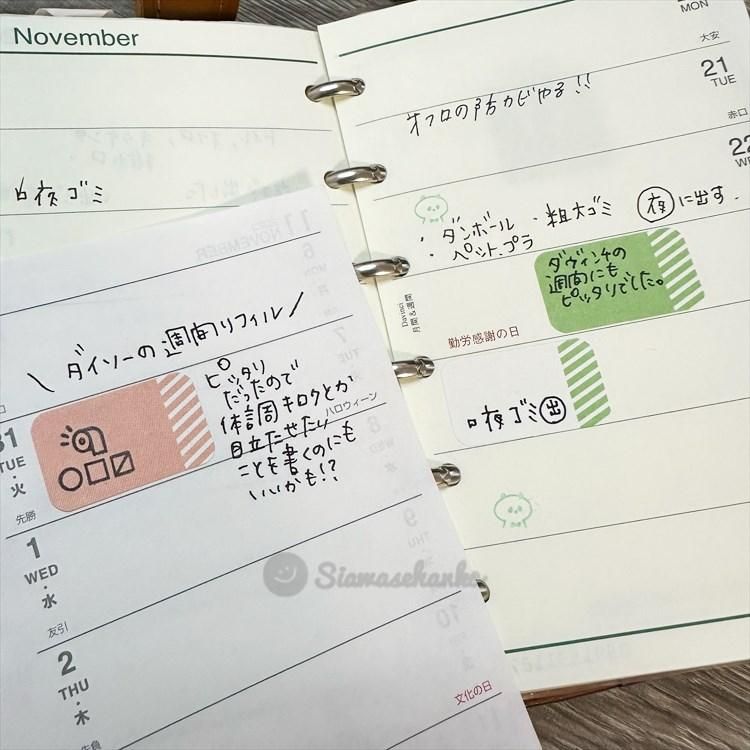 November
夜ゴミ
MON
大安
21
TUE
赤口
オフロの防カビやる!!
22
・ダンボール ・粗大ゴミ 夜に出す.
・ペット.プラ
ダヴィンチの
週間にも
ピッタリでした。
Davinci
月間&週間
勤労感謝の日
夜ゴミ出
11
NOVEMBER
6
MON
月
7
TUE
\ ダイソーの週間リフィル /
ピッタリ
だったので
体調キロクとか
目立たせたい
ことを書くのにも
いいかも!?
ハロウィーン
31
TUE
・
火
先勝
8
WED
水
1
WED
・
水
友引
9
THU
2
THU
・
木
先負
10
文化の日
Siawasehanko